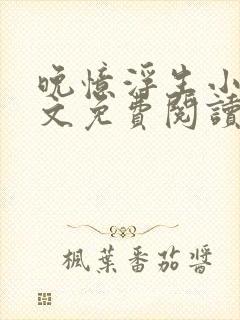 晚憶浮生小
文免費閱讀
楓葉番茄醬